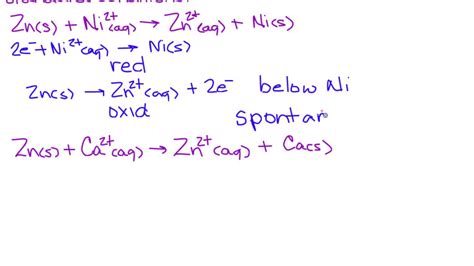 Zn(s) + Ni²⁺(aq) → Zn²⁺(aq) + Ni(s)
2e⁻ + Ni²⁺(aq) → Ni(s)
red
Zn(s) → Zn²⁺(aq) + 2e⁻ below Ni
oxid
spontan
Zn(s) + Ca²⁺(aq) → Zn²⁺(aq) + Ca(s)